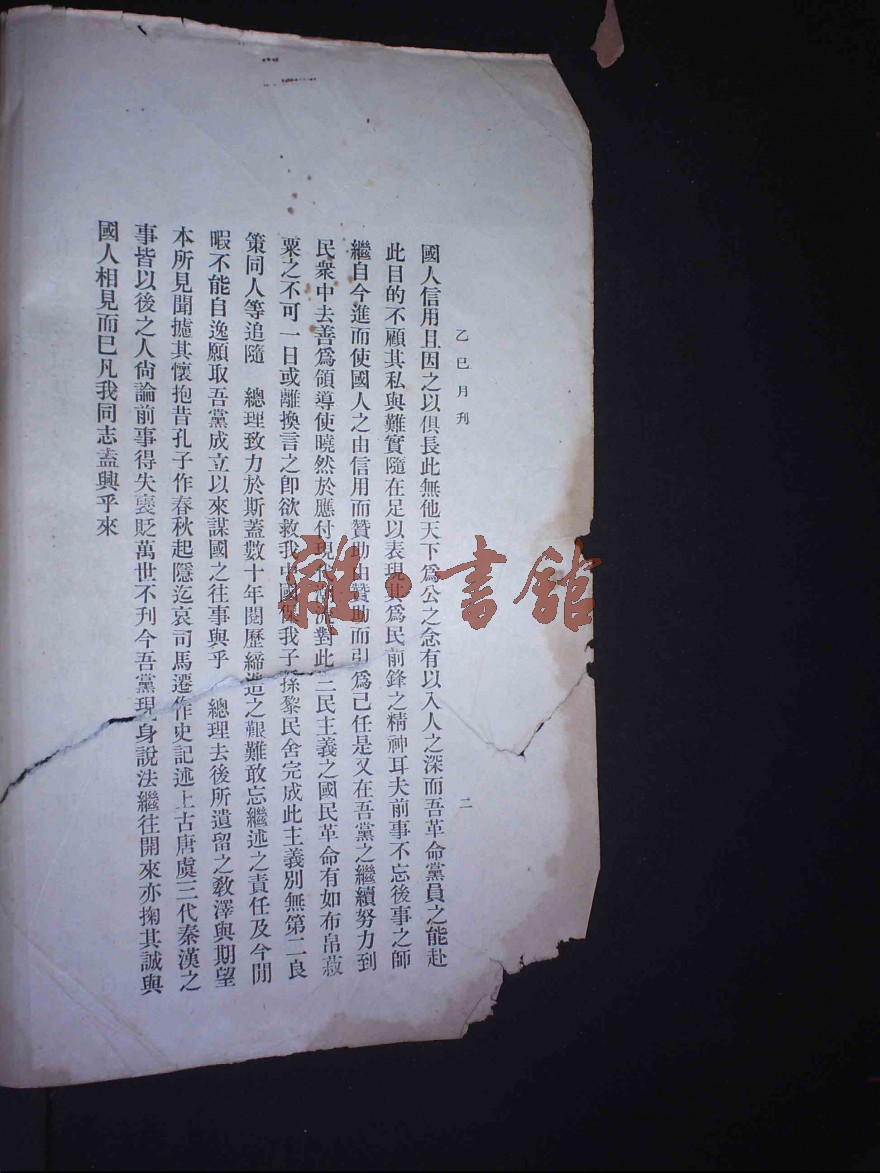 乙巳月刊
二
國人信用且因之以俱長此無他天下爲公之念有以入人之深而吾革命黨員之能赴
此目的不顧其私與難實隨在足以表現其爲民前鋒之精神耳夫前事不忘後事之師
繼自今進而使國人之由信用而贊助由贊助而引爲己任是又在吾黨之繼續努力到
民衆中去善爲領導使曉然於應付現代潮流對此三民主義之國民革命有如布帛菽
粟之不可一日或離換言之卽欲救我中國保我子孫黎民舍完成此主義別無第二良
策同人等追隨　總理致力於斯蓋數十年閱歷締造之艱難敢忘繼述之責任及今閒
暇不能自逸願取吾黨成立以來謀國之往事與乎　總理去後所遺留之敎澤與期望
本所見聞攄其懷抱昔孔子作春秋起隱迄哀司馬遷作史記述上古唐虞三代秦漢之
事皆以後之人尙論前事得失襃貶萬世不刊今吾黨現身說法繼往開來亦掬其誠與
國人相見而已凡我同志盍興乎來
雜·書館